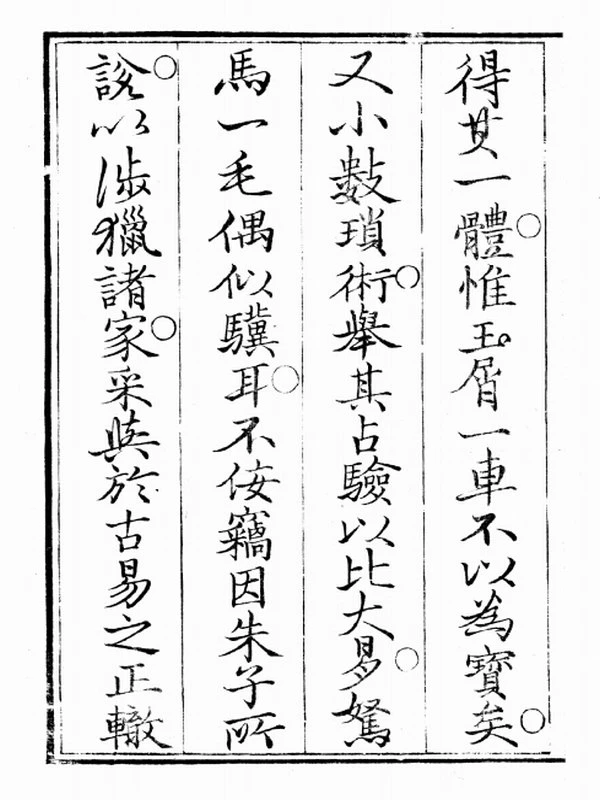 得其一體惟玉屑一車不以為寶矣
又小數瑣術舉其占驗以比大易駑
馬一毛偶似驥耳不佞竊因朱子所
說以涉獵諸家采與於古易之正轍